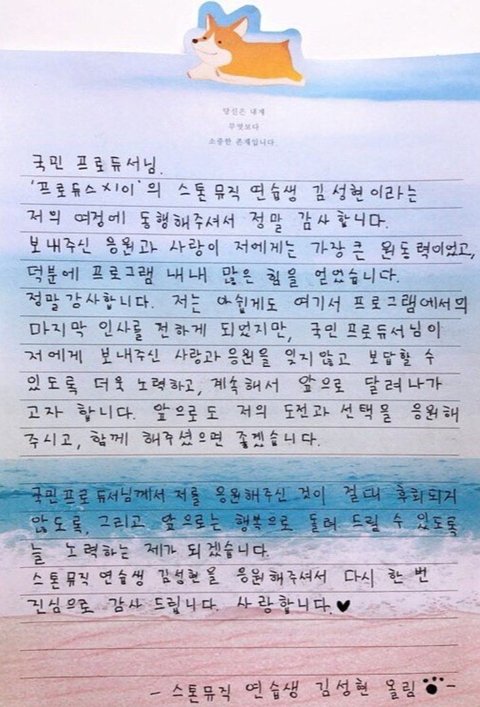 당신은 내게
무엇보다
소중한 존재입니다.
국민 프로듀서님.
'프로듀스X101'의 스톤뮤직 연습생 김성현이라는
저의 여정에 동행해주셔서 정말 감사합니다.
보내주신 응원과 사랑이 저에게는 가장 큰 원동력이었고,
덕분에 프로그램 내내 많은 힘을 얻었습니다.
정말 감사합니다. 저는 아쉽게도 여기서 프로그램에서의
마지막 인사를 전하게 되었지만, 국민 프로듀서님이
저에게 보내주신 사랑과 응원을 잊지않고 보답할 수
있도록 더욱 노력하고, 계속해서 앞으로 달려나가
고자 합니다. 앞으로도 저의 도전과 선택을 응원해
주시고, 함께 해주셨으면 좋겠습니다.
국민프로듀서님께서 저를 응원해주신 것이 절대 후회되지
않도록, 그리고 앞으로는 행복으로 돌려 드릴 수 있도록
늘 노력하는 제가 되겠습니다.
스톤뮤직 연습생 김성현을 응원해주셔서 다시 한 번
진심으로 감사 드립니다. 사랑합니다.♥
- 스톤뮤직 연습생 김성현 올림 -